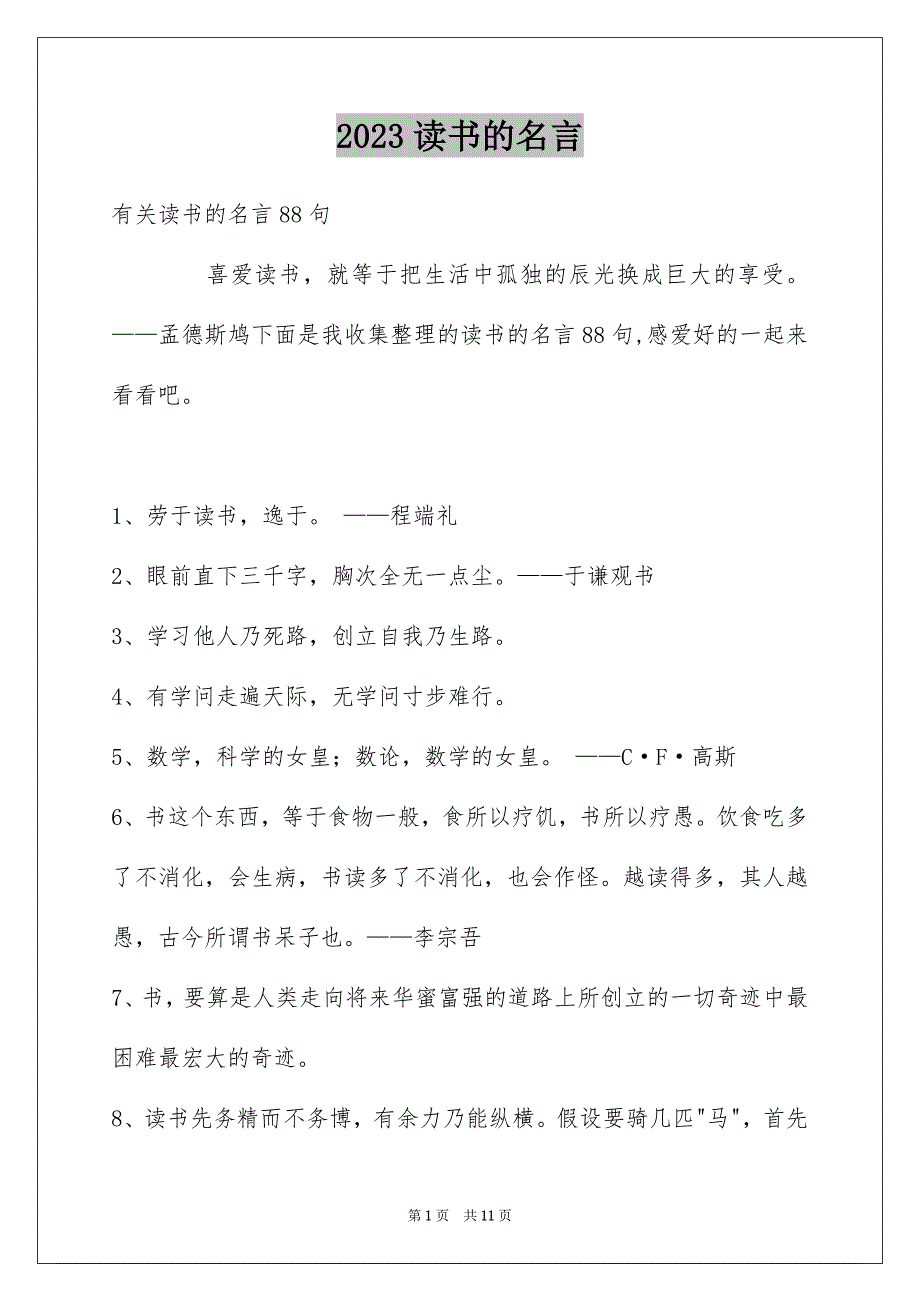 2023读书的名言
有关读书的名言88句
喜爱读书，就等于把生活中孤独的辰光换成巨大的享受。
——孟德斯鸠下面是我收集整理的读书的名言88句,感爱好的一起来
看看吧。
1、劳于读书，逸于。 ——程端礼
2、眼前直下三千字，胸次全无一点尘。——于谦观书
3、学习他人乃死路，创立自我乃生路。
4、有学问走遍天际，无学问寸步难行。
5、数学，科学的女皇；数论，数学的女皇。 ——C·F·高斯
6、书这个东西，等于食物一般，食所以疗饥，书所以疗愚。饮食吃多
了不消化，会生病，书读多了不消化，也会作怪。越读得多，其人越
愚，古今所谓书呆子也。——李宗吾
7、书，要算是人类走向将来华蜜富强的道路上所创立的一切奇迹中最
困难最宏大的奇迹。
8、读书先务精而不务博，有余力乃能纵横。假设要骑几匹"马"，首先
第1页 共11页